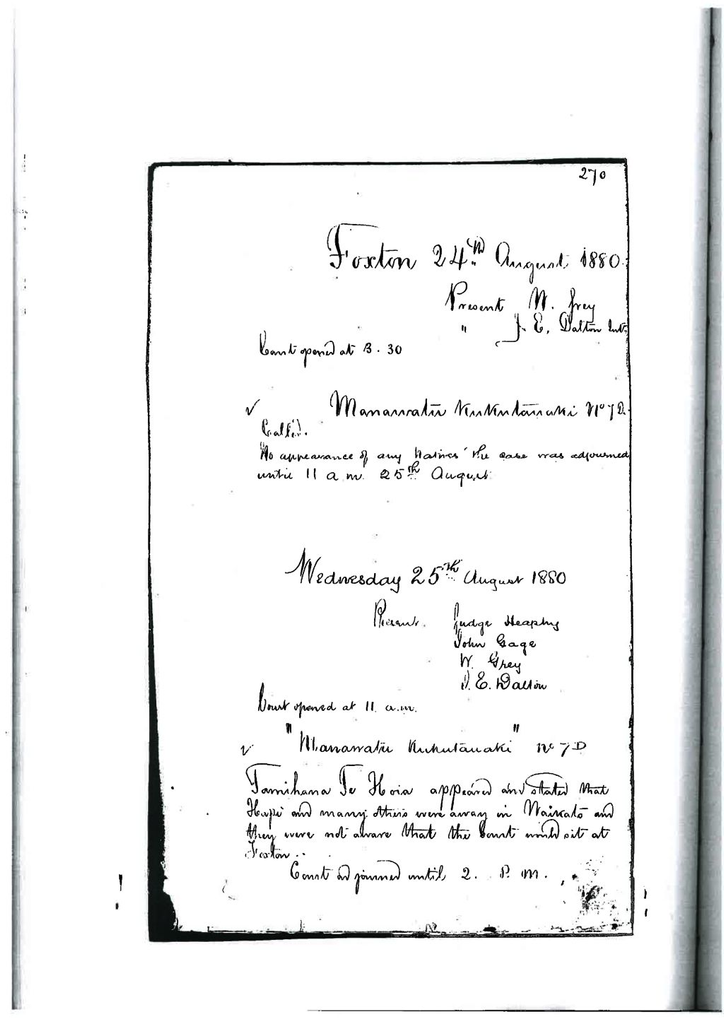 270
Foxton 24th August 1880.
Present W. Grey
" J. E. Dalton Int.
Court opened at 3.30
✓ Manawatu Kukutauaki No 7D.
Called.
No appearance of any Natives the case was adjourned
until 11 a.m. 25th August.
Wednesday 25th August 1880
Present. Judge Heaphy
John Gage
W. Grey
J. E. Dalton
Court opened at 11 a.m.
✓ "Manawatu Kukutauaki" No 7D
Tamihana Te Hoia appeared and stated that
Hape and many others were away in Waikato and
they were not aware that the Court would sit at
Foxton.
Court adjourned until 2. P.M.